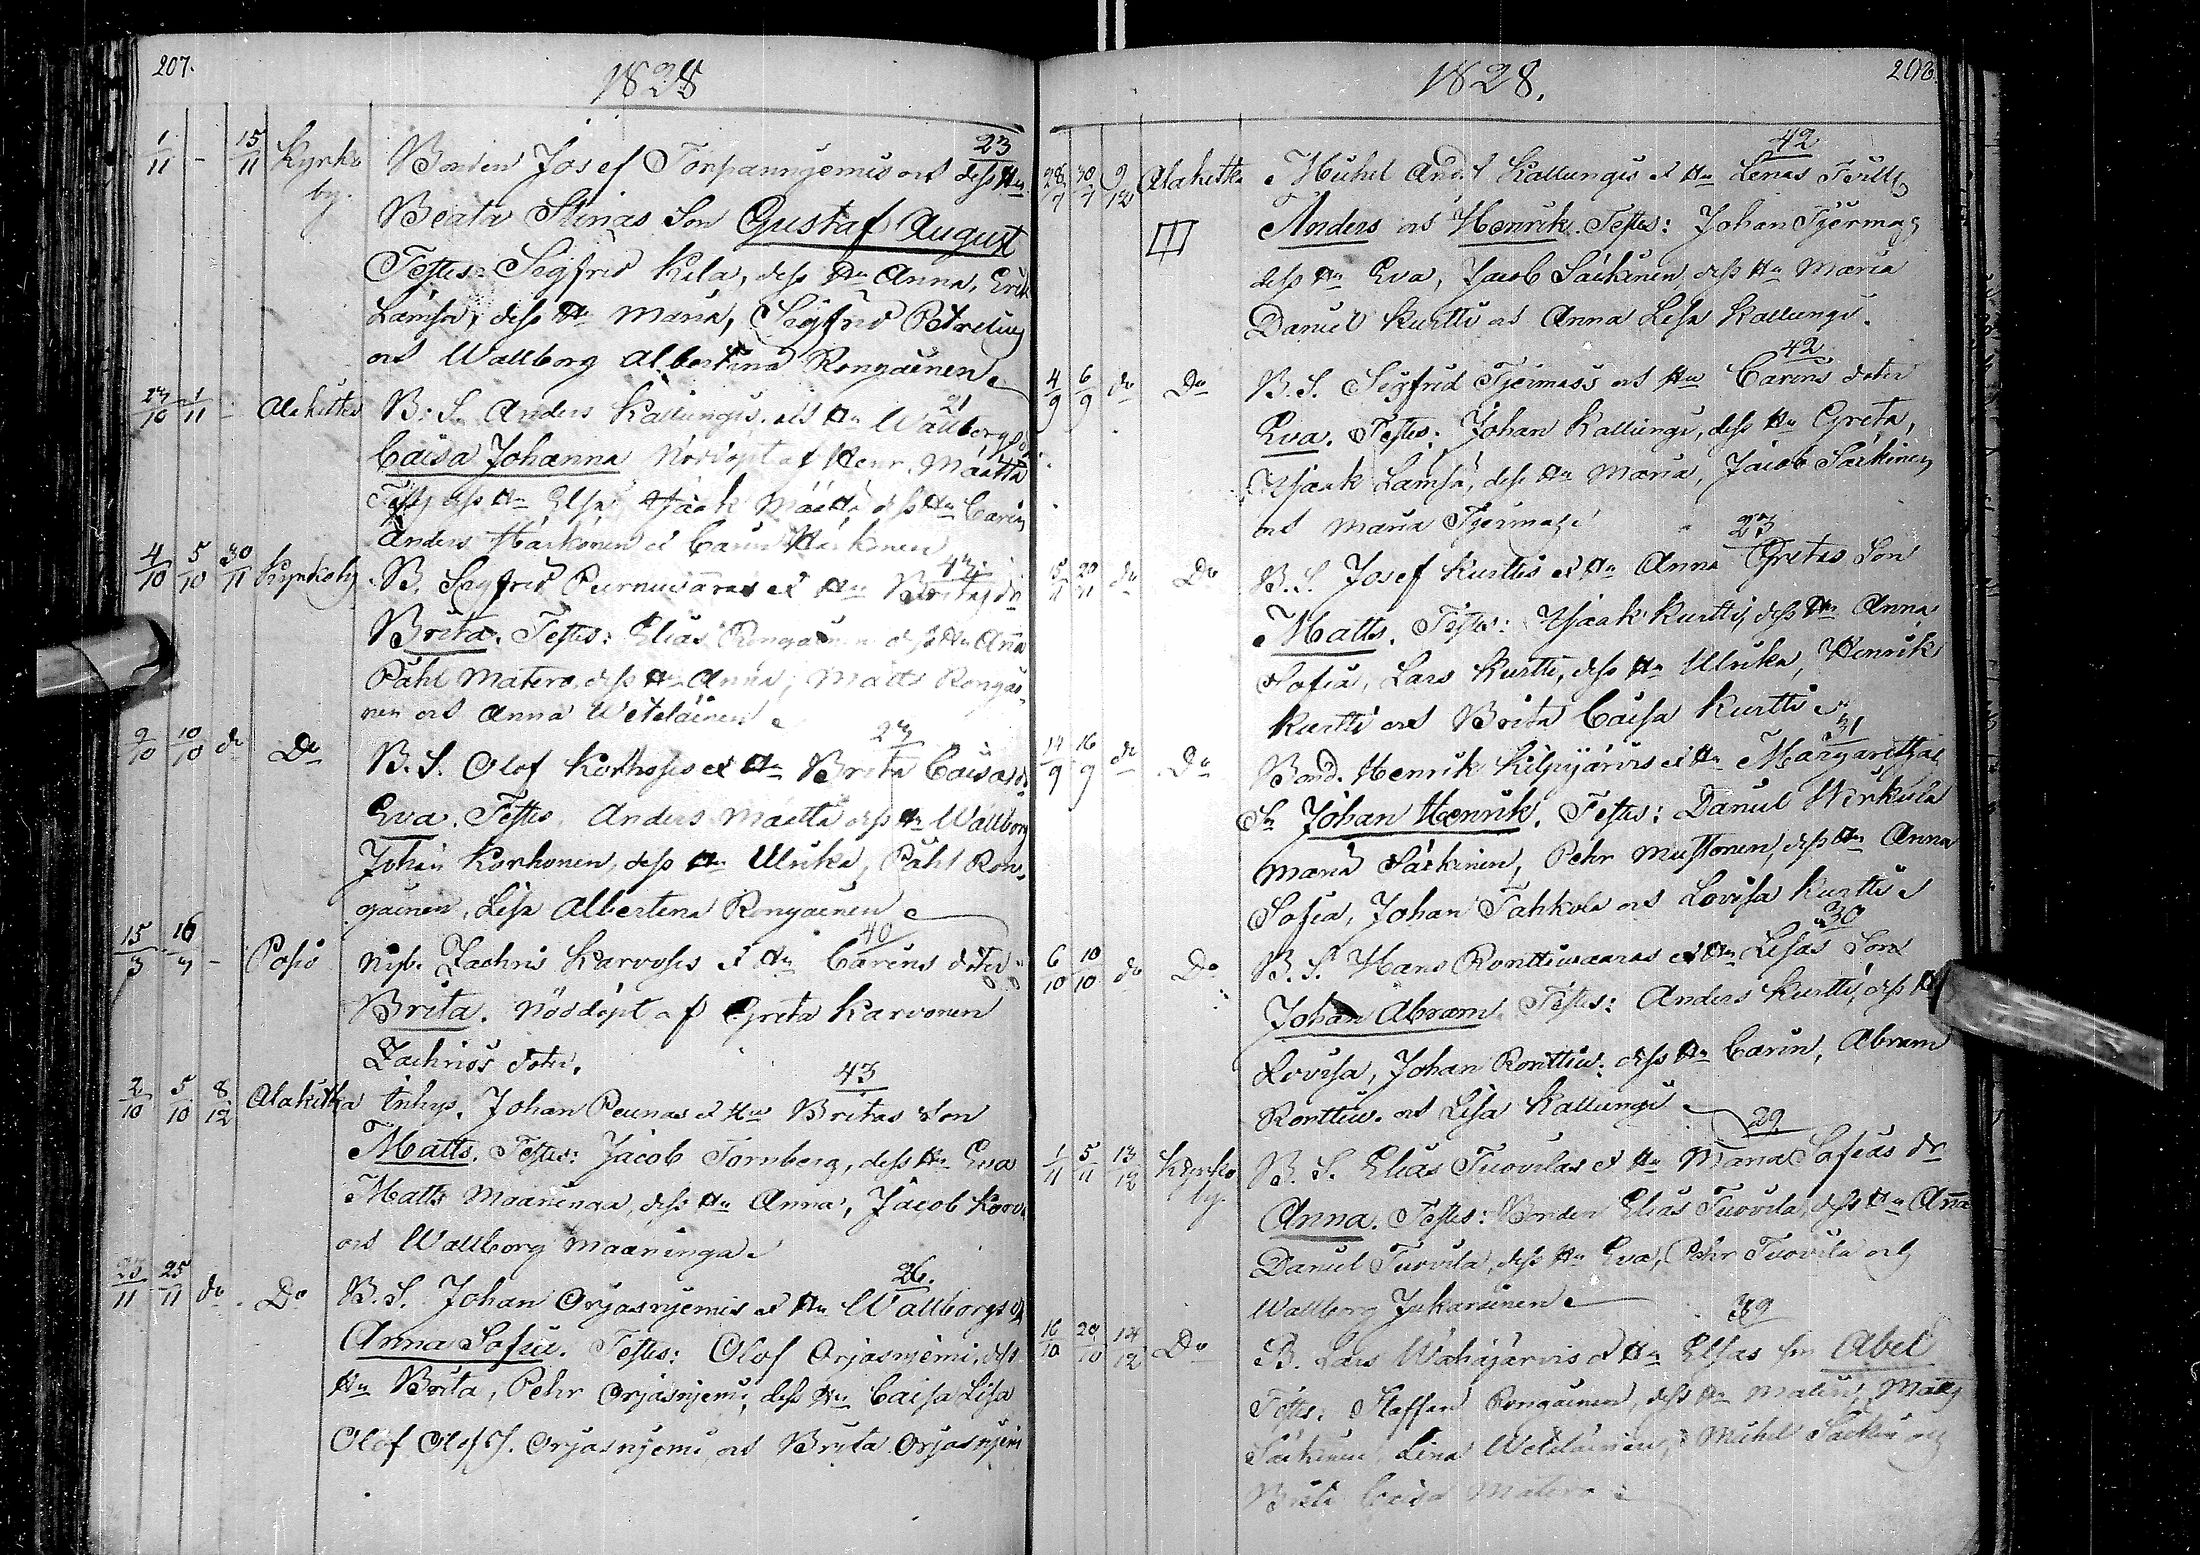 207.
1828
1/11 - 15/11 Kyrko by. Bonden Josef Torpannjemis och dess Hu 23
Beata Stinas Son Gustaf August
Testes: Sigfrid Kela, dess Hu Anna, Erik
Lämsä, dess Hu Maria, Sigfrid Petrelius
och Wallborg Albertina Rongainen
10 1/11 - Alakitka B. S. Anders Kallungis och Hu Wallborgs 21
Caisa Johanna Nöddöpt af Henr. Määttä
dess Hu Elsa Isaak Määttä dess Hu Carin
Anders Härkönen et Carin Härkönen
4/10 5/10 30/11 Kyrkoby B. Sigfrid Purnuvaaras et Hu Britas dr 43
Brita. Testes: Elias Rongainen dess Hu Aña
Påhl Matero, dess Hu Anna, Matts Rongai-
nen och Anna Weteläinen
9/10 10/10 do Do B. S. Olof Korhoses et Hu Brita Caisas dr
Eva. Testes. Anders Määttä dess Hu Wallborg
Johan Korhonen, dess Hu Ulrika, Påhl Ron-
gainen, Lisa Albertena Rongainen
15/3 16/3 - Posio Nyb. Zachris Karvoses et Hu Carins doter 40
Brita. Nöddöpt af Greta Karvonen
Zachris doter.
2/10 5/10 8/12 Alakitka Inhys. Johan Peunas et Hus Britas Son 43
Matts. Testes: Jacob Tornberg, dess Hu Eva
Matts Maaninga, dess Hu Anna, Jacob
och Wallborg Maaninga
23/11 25/11 do Do B. S. Johan Orjasnjemis et Hu Wallborgs dr 26.
Anna Sofia. Testes: Olof Orjasnjemi, dess
Hu Brita, Pehr Orjasnjemi, dess Hu Caisa Lisa
Olof Olofs. Orjasnjemi, och Brita Orjasnjemi
208.
1828.
30 9/12 Alakitka Michel And.s Kallungis et Hu Lenas Tvill. 42
Anders och Henrik. Testes: Johan Tjerma
dess Hu Eva, Jacob Säckinen, dess Hu Maria
Daniel Kurtti och Anna Lisa Kallungi.
4/9 6/9 do Do B. S. Sigfrid Tjermas och Hu Carins doter 42
Eva. Testes: Johan Kallungi, dess Hu Greta,
Isaak Lämsä, dess Hu Maria, Jacob Särkinen
och Maria Tjerma
5/11 20/11 do Do B. S. Josef Kurttis et Hu Anna Gretas Son 27
Matts. Testes: Isaak Kurtti, dess Hu Anna
Sofia, Lars Kurtti, dess Hu Ulrika, Henrik
Kurtti och Brita Caisa Kurtti
14/9 16/9 do Do Bond. Henrik Kilpijärvis et Hu Margarethas 31
Sn Johan Henrik. Testes: Daniel Wirkula
Maria Säckinen, Pehr Mustonen, dess Hu Anna
Sofia, Johan Tahkola och Lovisa Kurtti
6/10 10/10 do Do B. S. Hans Ronttiwaaras et Hu Lisas Son 30
Johan Abram. Testes: Anders Kurtti, dess Hu
Lovisa, Johan Ronttiw. dess Hu Carin, Abram
Ronttiw. och Lisa Kallungi
1/11 5/11 13/12 Kyrko by. B. S. Elias Tuovilas et Hu Maria Sofias dr 29
Anna. Testes: Bonden Elias Tuovila, dess Hu Aña
Daniel Tuovila, dess Hu Eva, Pehr Tuovila och
Wallborg Jukarainen
16/10 20/10 14/12 Do B. Lars Wahäjärvis et Hu Elsas son Abel 39
Testes: Staffan Rongainen, dess Hu Malin, Matts
Säckinen, Lena Weteläinen, Michel och
Brita Caisa Matero